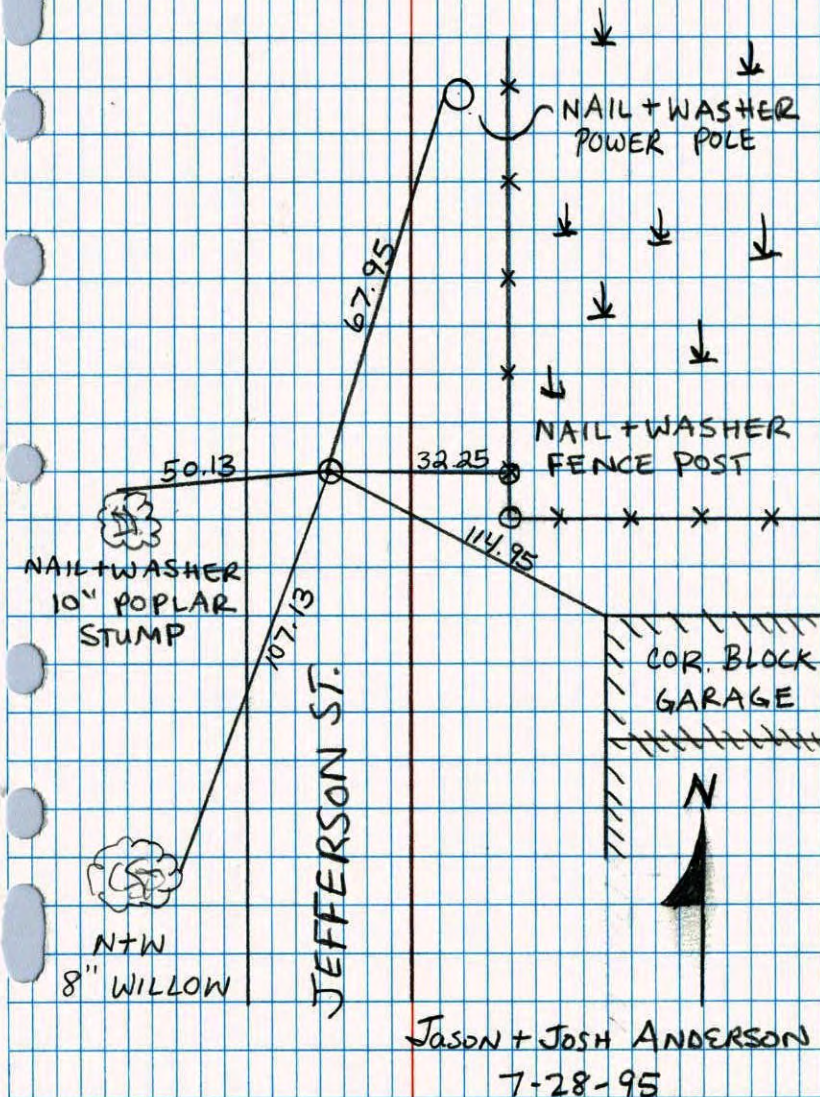 NAIL + WASHER
POWER POLE
67.95
NAIL + WASHER
FENCE POST
50.13
32.25
114.95
NAIL + WASHER
10" POPLAR
STUMP
107.13
COR. BLOCK
GARAGE
JEFFERSON ST.
N
N+W
8" WILLOW
JASON + JOSH ANDERSON
7-28-95